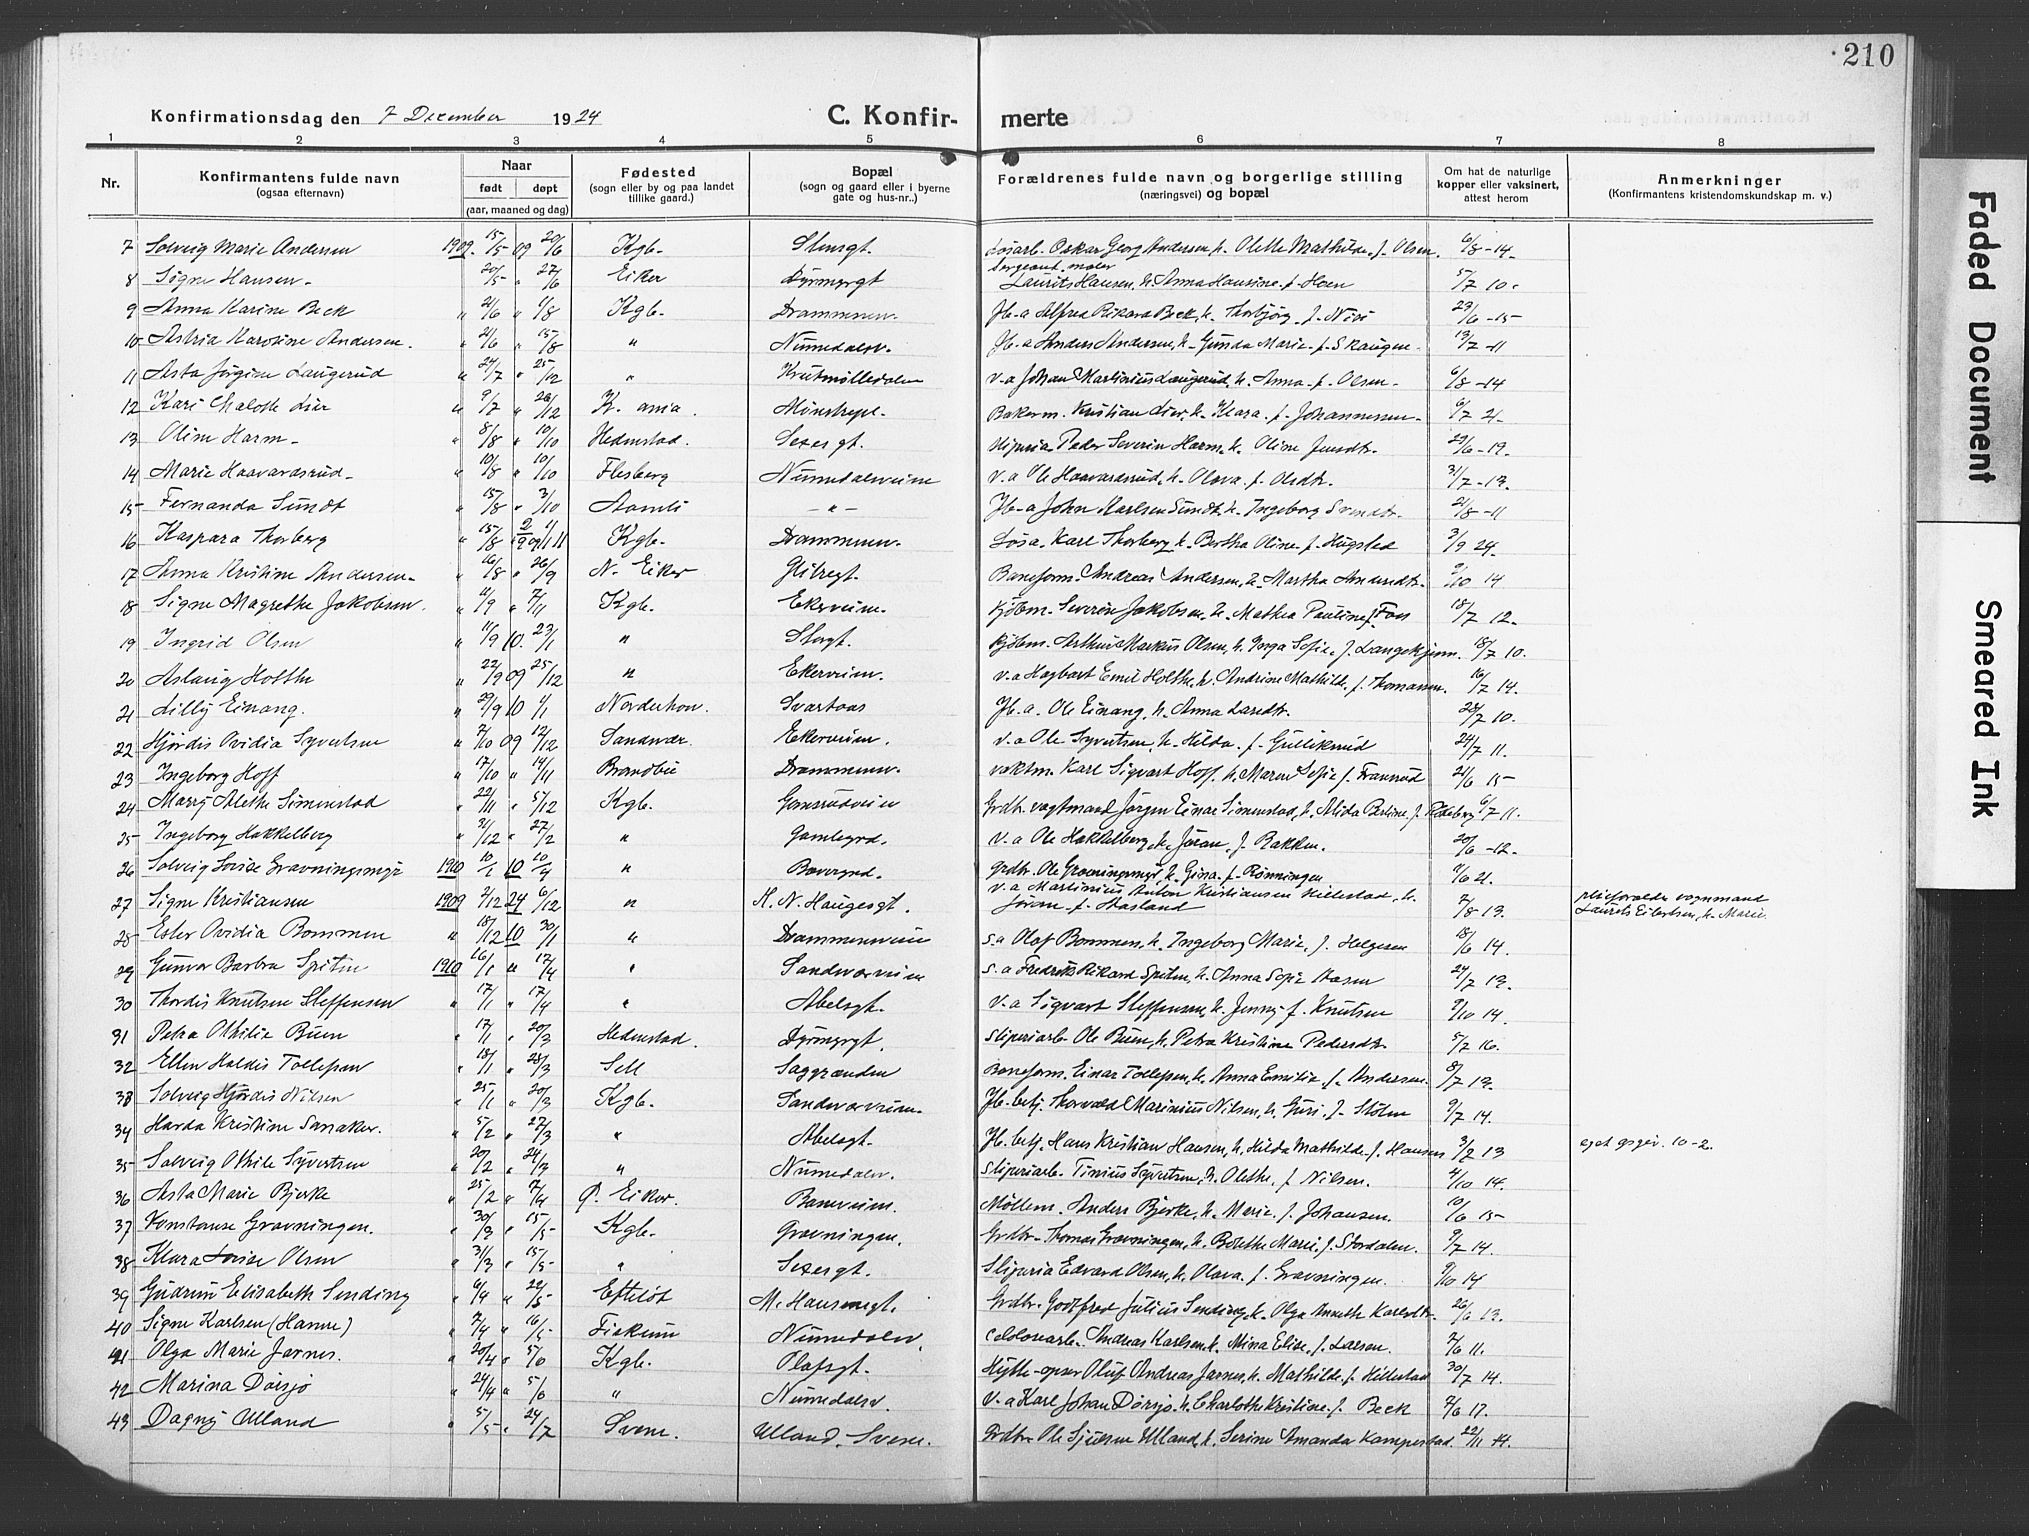 210
Konfirmationsdag den 7 December 1924
C. Konfir- merte
1 2 3 4 5 6 7 8
Nr. Konfirmantens fulde navn (ogsaa efternavn) Naar født døpt (aar, maaned og dag) Fødested (sogn eller by og paa landet tillike gaard.) Bopæl (sogn og gaard eller i byerne gate og hus-nr..) Forældrenes fulde navn og borgerlige stilling (næringsvei) og bopæl Om hat de naturlige kopper eller vaksinert, attest herom Anmerkninger (Konfirmantens kristendomskundskap m. v.)
7 Solveig Marie Andersen 1909. 15/5 09 20/6 Kgb. Stensgt. Løsarb. Oskar Georg Andersen, h. Olette Mathilde f. Olsen. 6/8 -14.
8 Signe Hansen 20/5 " 27/6 Eiker Dyrmyrgt Sergeant, maler Laurits Hansen, h. Anna Hansine f. Hoen 5/7 10.
9 Anna Karine Beck " 21/6 " 1/8 Kgb. Drammensv. Jb.-a Alfred Rikard Beck, h. Thorbjørg f. 23/6 -15
10 Astrid Karoline Andersen. " 21/6 " 15/8 " Numedalsv. Jb.-a Anders Andersen, h. Gunda Marie f. Skaugen 13/7 -11
11 Asta Jørgine Laugerud " 24/7 " 25/12 " Krutmølledalen v.-a Johan Martinius Laugerud, h. Anna f. Olsen 6/8 -14
12 Kari Chalotte Lier " 9/7 " 26/12 K. ania. Bakerm. Kristian Lier, h. Klara f. Johannesen 6/7 21.
13 Oline Harm " 8/8 " 10/10 Hedenstad. Sexesgt. Peder Severin Harm, h. Oline Jensdtr. 29/6 -19.
14 Marie Haavardsrud " 10/8 " 10/10 Flesberg Numedalsveien v.a Ole Haavardsrud, h. Olava f. Olsdtr. 31/7 -13.
15 Fernanda Sundt " 15/8 " 3/10 Aamli - " - Jb.-a John Karlsen Sundt, h. Ingeborg Svendtr. 21/8 -11
16 Kaspara Thorberg " 15/8 Kgb. Drammensv. Løsa. Karl Thorberg, h. Bertha Oline f. Hugstad 3/9 24.
17 Anna Kristine Andersen " 16/8 " 26/9 N. Eiker Glitregt. Baneform. Andreas Andersen, h. Martha Andersdtr. 9/10 14
18 Signe Magrethe Jakobsen. " 11/9 " 7/11 Kgb. Ekerveien. Kjøbm. Severin Jakobsen, h. Mathea Pauline f. Foss 18/7 12.
19 Ingrid Olsen " 11/9 10. 23/1 " Storgt. Kjøbm. Arthur Markus Olsen, h. Inga Sofie f. Langekjenn. 18/7 10.
20 Aslaug Holthe " 22/9 09 25/12 " Ekerveien. v.a Hagbart Emil Holthe, h. Andrine Mathilde f. Thomasen. 16/7 14.
21 Lilly Einang. " 29/9 10 9/1 Norderhov. Svartaas Jb. a. Ole Einang, h. Anna Larsdtr. 28/7 10.
22 Hjørdis Ovidia Syvertsen " 7/10 09 12/12 Sandsvær. Ekerveien. v.a Ole Syvertsen, h. Hilda f. Gulliksrud 24/7 11.
23 Ingeborg Hoff " 17/10 " 14/11 Brandbu Drammensv. vaktm. Karl Sigvart Hoff, h. Maren Sofie f. 21/6 15
24 Marry Alethe Simenstad " 22/11 " 5/12 Kgb. Gomsrudveien Grdbr. vogtmand Jørgen Einar Simenstad, h. Alida Bertine f. 6/7 11.
25 Ingeborg Hakkelberg " 31/12 " 27/2 " Gamlegrd. v.a Ole Hakkelberg, h. Jøran f. Bakken. 20/6 -12.
26 Solveig Lovise Gravningsmyr 1910 10/1 10 10/4 " Bævergrd. grdbr. Ole Gravningsmyr, h. Gina f. Rønningen 9/6 21.
27 Signe Kristiansen 1909 2/12 24 6/12 " H. N. Haugesgt. v.a Martinius Anton Kristiansen Killestad, h. Jøran f. Aasland 7/8 13. pleieforælder vognmand Laurits Eilertsen, h. Marie.
28 Ester Ovidia Bommen " 18/12 10 30/1 " Drammensveien s.a Olaf Bommen, h. Ingeborg Marie, f. Helgesen 18/6 14.
29 Gunvor Barbra Spiten 1910 16/1 " 17/4 " Sandsværveien s.a Fredrik Rikard Spiten, h. Anna Sofie Aasen 24/7 13.
30 Thordis Knutsen Steffensen " 17/1 " 17/4 " Abelsgt. v.a Sigvart Steffensen, h. Jenny f. Knutsen 9/10 14.
31 Petra Othilie Buen " 17/1 " 20/3 Hedenstad. Dyrmyrgt. sliperiarb. Ole Buen, h. Petra Kristine Pedersdtr. 5/7 16.
32 Ellen Haldis Tollefsen " 18/1 " 28/3 Sell Saggrænden Baneform. Einar Tollefsen, h. Anna Emilie f. Andersen. 8/7 13.
33 Solveig Hjørdis Nilsen " 25/1 " 20/3 Kgb. Sandsværveien. Jb. betj. Thorvald Marinius Nilsen, h. Guri f. Stølen 9/7 14.
34 Harda Kristine Sanaker. " 5/2 " 27/3 " Abelsgt. Jb. betj. Hans Kristian Hansen, h. Hilda Mathilde f. Hansen 3/2 13 eget opgiv. 10-2.
35 Solveig Othile Syvertsen " 20/2 " 24/3 " Numedalsv. sliperiarb. Tinius Syvertsen, h. Olethe, f. Nilsen. 4/10 14.
36 Asta Marie Bjerke " 25/2 " 7/4 Ø. Eiker. Baneveien. Møllem. Anders Bjerke, h. Marie f. Johansen. 10/6 15
37 Konstanse Gravningen. " 30/3 " 15/5 Kgb. Gravningen. Grdbr. Thomas Gravningen, h. Bolethe Marie, f. Stordalen. 9/7 14.
38 Klara Lovise Olsen " 31/3 " 15/5 " Sexesgt. Sliperia Edvard Olsen, h. Olava f. Gravningen. 9/10 14
39 Gudrun Elisabeth Sending " 6/4 " 22/5 Efteløt M. Hansensgt. Grdbr. Godtfred Julius Sending, h. Olga Annette Karlsdtr. 26/6 13.
40 Signe Karlsen (Hamre) " 7/4 " 16/5 Fiskum Numedalsv. Celolosearb. Andreas Karlsen, h. Mina Elise f. Larsen. 2/6 11.
41 Olga Marie Jarnes. " 20/4 " 5/6 Kgb. Olafsgt. Hytte-opser Oluf Andreas Jarnes, h. Mathilde f. Killestad 30/7 14.
42 Marina Dørsjø " 24/4 " 5/6 " Numedalsv. V.a Karl Johan Dørsjø, h. Charlotte Kristine f. Beck 2/6 17.
43 Dagny Ulland " 5/5 " 24/7 Svene. Ulland, Svene. Grdbr. Ole Sjulsen Ulland, h. Serine Amanda Kampestad. 22/11 14.
Faded Document
Smeared Ink